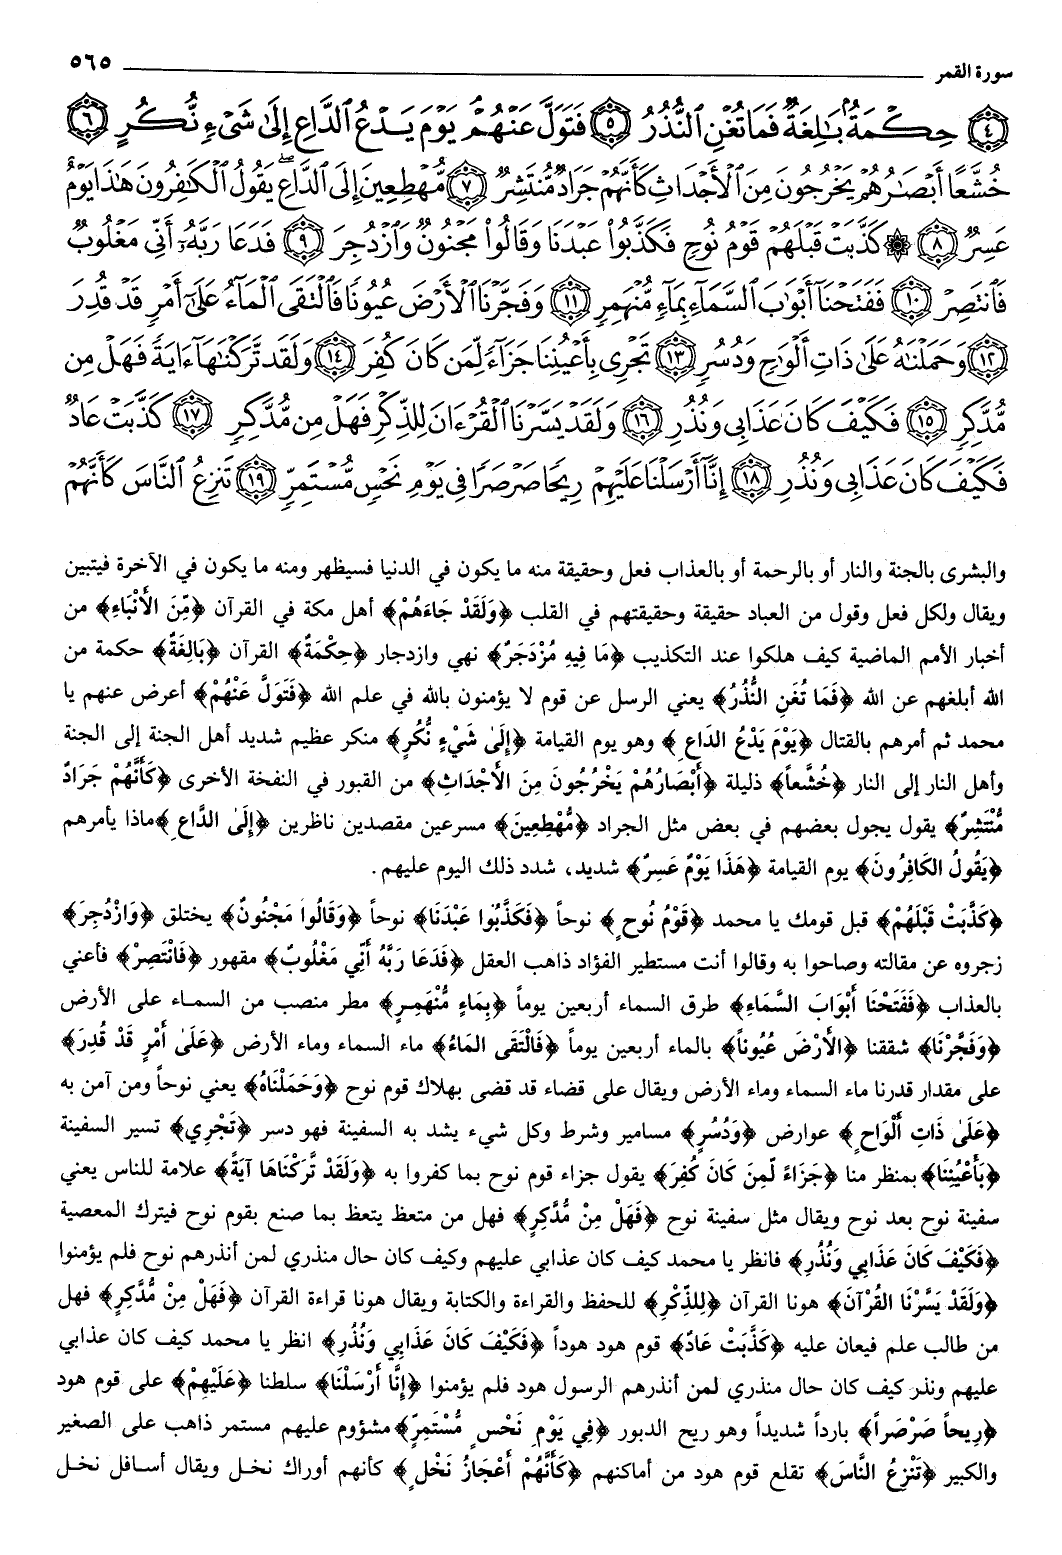 سورة القمر ٥٦٥
﴿٤﴾ حِكْمَةٌ بَالِغَةٌ فَمَا تُغْنِ النُّذُرُ ﴿٥﴾ فَتَوَلَّ عَنْهُمْ يَوْمَ يَدْعُ الدَّاعِ إِلَى شَيْءٍ نُكُرٍ ﴿٦﴾
خُشَّعًا أَبْصَارُهُمْ يَخْرُجُونَ مِنَ الْأَجْدَاثِ كَأَنَّهُمْ جَرَادٌ مُنْتَشِرٌ ﴿٧﴾ مُهْطِعِينَ إِلَى الدَّاعِ يَقُولُ الْكَافِرُونَ هَذَا يَوْمٌ
عَسِرٌ ﴿٨﴾ ۞ كَذَّبَتْ قَبْلَهُمْ قَوْمُ نُوحٍ فَكَذَّبُوا عَبْدَنَا وَقَالُوا مَجْنُونٌ وَازْدُجِرَ ﴿٩﴾ فَدَعَا رَبَّهُ أَنِّي مَغْلُوبٌ
فَانْتَصِرْ ﴿١٠﴾ فَفَتَحْنَا أَبْوَابَ السَّمَاءِ بِمَاءٍ مُنْهَمِرٍ ﴿١١﴾ وَفَجَّرْنَا الْأَرْضَ عُيُونًا فَالْتَقَى الْمَاءُ عَلَى أَمْرٍ قَدْ قُدِرَ
﴿١٢﴾ وَحَمَلْنَاهُ عَلَى ذَاتِ أَلْوَاحٍ وَدُسُرٍ ﴿١٣﴾ تَجْرِي بِأَعْيُنِنَا جَزَاءً لِمَنْ كَانَ كُفِرَ ﴿١٤﴾ وَلَقَدْ تَرَكْنَاهَا ءَايَةً فَهَلْ مِنْ
مُدَّكِرٍ ﴿١٥﴾ فَكَيْفَ كَانَ عَذَابِي وَنُذُرِ ﴿١٦﴾ وَلَقَدْ يَسَّرْنَا الْقُرْءَانَ لِلذِّكْرِ فَهَلْ مِنْ مُدَّكِرٍ ﴿١٧﴾ كَذَّبَتْ عَادٌ
فَكَيْفَ كَانَ عَذَابِي وَنُذُرِ ﴿١٨﴾ إِنَّا أَرْسَلْنَا عَلَيْهِمْ رِيحًا صَرْصَرًا فِي يَوْمِ نَحْسٍ مُسْتَمِرٍّ ﴿١٩﴾ تَنْزِعُ النَّاسَ كَأَنَّهُمْ
والبشرى بالجنة والنار أو بالرحمة أو بالعذاب فعل وحقيقة منه ما يكون في الدنيا فسيظهر ومنه ما يكون في الآخرة فيتبين
ويقال ولكل فعل وقول من العباد حقيقة وحقيقتهم في القلب ﴿وَلَقَدْ جَاءَهُمْ﴾ أهل مكة في القرآن ﴿مِّنَ الْأَنْبَاءِ﴾ من
أخبار الأمم الماضية كيف هلكوا عند التكذيب ﴿مَا فِيهِ مُزْدَجَرٌ﴾ نهي وازدجار ﴿حِكْمَةٌ﴾ القرآن ﴿بَالِغَةٌ﴾ حكمة من
الله أبلغهم عن الله ﴿فَمَا تُغَنِ النُّذُرُ﴾ يعني الرسل عن قوم لا يؤمنون بالله في علم الله ﴿فَتَوَلَّ عَنْهُمْ﴾ أعرض عنهم يا
محمد ثم أمرهم بالقتال ﴿يَوْمَ يَدْعُ الدَاعِ﴾ وهو يوم القيامة ﴿إِلَىٰ شَيْءٍ نُّكُرٍ﴾ منكر عظيم شديد أهل الجنة إلى الجنة
وأهل النار إلى النار ﴿خُشَّعاً﴾ ذليلة ﴿أَبْصَارُهُمْ يَخْرُجُونَ مِنَ الْأَجْدَاثِ﴾ من القبور في النفخة الأخرى ﴿كَأَنَّهُمْ جَرَادٌ
مُّنْتَشِرٌ﴾ يقول يجول بعضهم في بعض مثل الجراد ﴿مُّهْطِعِينَ﴾ مسرعين مقصدين ناظرين ﴿إِلَى الدَّاعِ﴾ ماذا يأمرهم
﴿يَقُولُ الكَافِرُونَ﴾ يوم القيامة ﴿هَذَا يَوْمٌ عَسِرٌ﴾ شديد، شدد ذلك اليوم عليهم.
﴿كَذَّبَتْ قَبْلَهُمْ﴾ قبل قومك يا محمد ﴿قَوْمُ نُوحٍ﴾ نوحاً ﴿فَكَذَّبُوا عَبْدَنَا﴾ نوحاً ﴿وَقَالُوا مَجْنُونٌ﴾ يختلق ﴿وَازْدُجِرَ﴾
زجروه عن مقالته وصاحوا به وقالوا أنت مستطير الفؤاد ذاهب العقل ﴿فَدَعَا رَبَّهُ أَنِّي مَغْلُوبٌ﴾ مقهور ﴿فَانْتَصِرْ﴾ فأعني
بالعذاب ﴿فَفَتَحْنَا أَبْوَابَ السَّمَاءِ﴾ طرق السماء أربعين يوماً ﴿بِمَاءٍ مُّنْهَمِرٍ﴾ مطر منصب من السماء على الأرض
﴿وَفَجَّرْنَا﴾ شققنا ﴿الأَرْضَ عُيُوناً﴾ بالماء أربعين يوماً ﴿فَالْتَقَى المَاءُ﴾ ماء السماء وماء الأرض ﴿عَلَىٰ أَمْرٍ قَدْ قُدِرَ﴾
على مقدار قدرنا ماء السماء وماء الأرض ويقال على قضاء قد قضى بهلاك قوم نوح ﴿وَحَمَلْنَاهُ﴾ يعني نوحاً ومن آمن به
﴿عَلَىٰ ذَاتِ أَلْوَاحٍ﴾ عوارض ﴿وَدُسُرٍ﴾ مسامير وشرط وكل شيء يشد به السفينة فهو دسر ﴿تَجْرِي﴾ تسير السفينة
﴿بِأَعْيُنِنَا﴾ بمنظر منا ﴿جَزَاءً لِّمِنَ كَانَ كُفِرَ﴾ يقول جزاء قوم نوح بما كفروا به ﴿وَلَقَدْ تَّرَكْنَاهَا آيَةً﴾ علامة للناس يعني
سفينة نوح بعد نوح ويقال مثل سفينة نوح ﴿فَهَلْ مِنْ مُّدَّكِرٍ﴾ فهل من متعظ يتعظ بما صنع بقوم نوح فيترك المعصية
﴿فَكَيْفَ كَانَ عَذَابِي وَنُذُرِ﴾ فانظر يا محمد كيف كان عذابي عليهم وكيف كان حال منذري لمن أنذرهم نوح فلم يؤمنوا
﴿وَلَقَدْ يَسَّرْنَا القُرْآنَ﴾ هونا القرآن ﴿لِلذِّكْرِ﴾ للحفظ والقراءة والكتابة ويقال هونا قراءة القرآن ﴿فَهَلْ مِن مُّدَّكِرٍ﴾ فهل
من طالب علم فيعان عليه ﴿كَذَّبَتْ عَادٌ﴾ قوم هود هوداً ﴿فَكَيْفَ كَانَ عَذَابِي وَنُذُرِ﴾ انظر يا محمد كيف كان عذابي
عليهم ونذر كيف كان حال منذري لمن أنذرهم الرسول هود فلم يؤمنوا ﴿إِنَّا أَرْسَلْنَا﴾ سلطنا ﴿عَلَيْهِمْ﴾ على قوم هود
﴿رِيحاً صَرْصَراً﴾ بارداً شديداً وهو ريح الدبور ﴿فِي يَوْمِ نَحْسٍ مُّسْتَمِرٍّ﴾ مشؤوم عليهم مستمر ذاهب على الصغير
والكبير ﴿تَنْزِعُ النَّاسَ﴾ تقلع قوم هود من أماكنهم ﴿كَأَنَّهُمْ أَعْجَازُ نَخْلٍ﴾ كأنهم أوراك نخل ويقال أسافل نخل